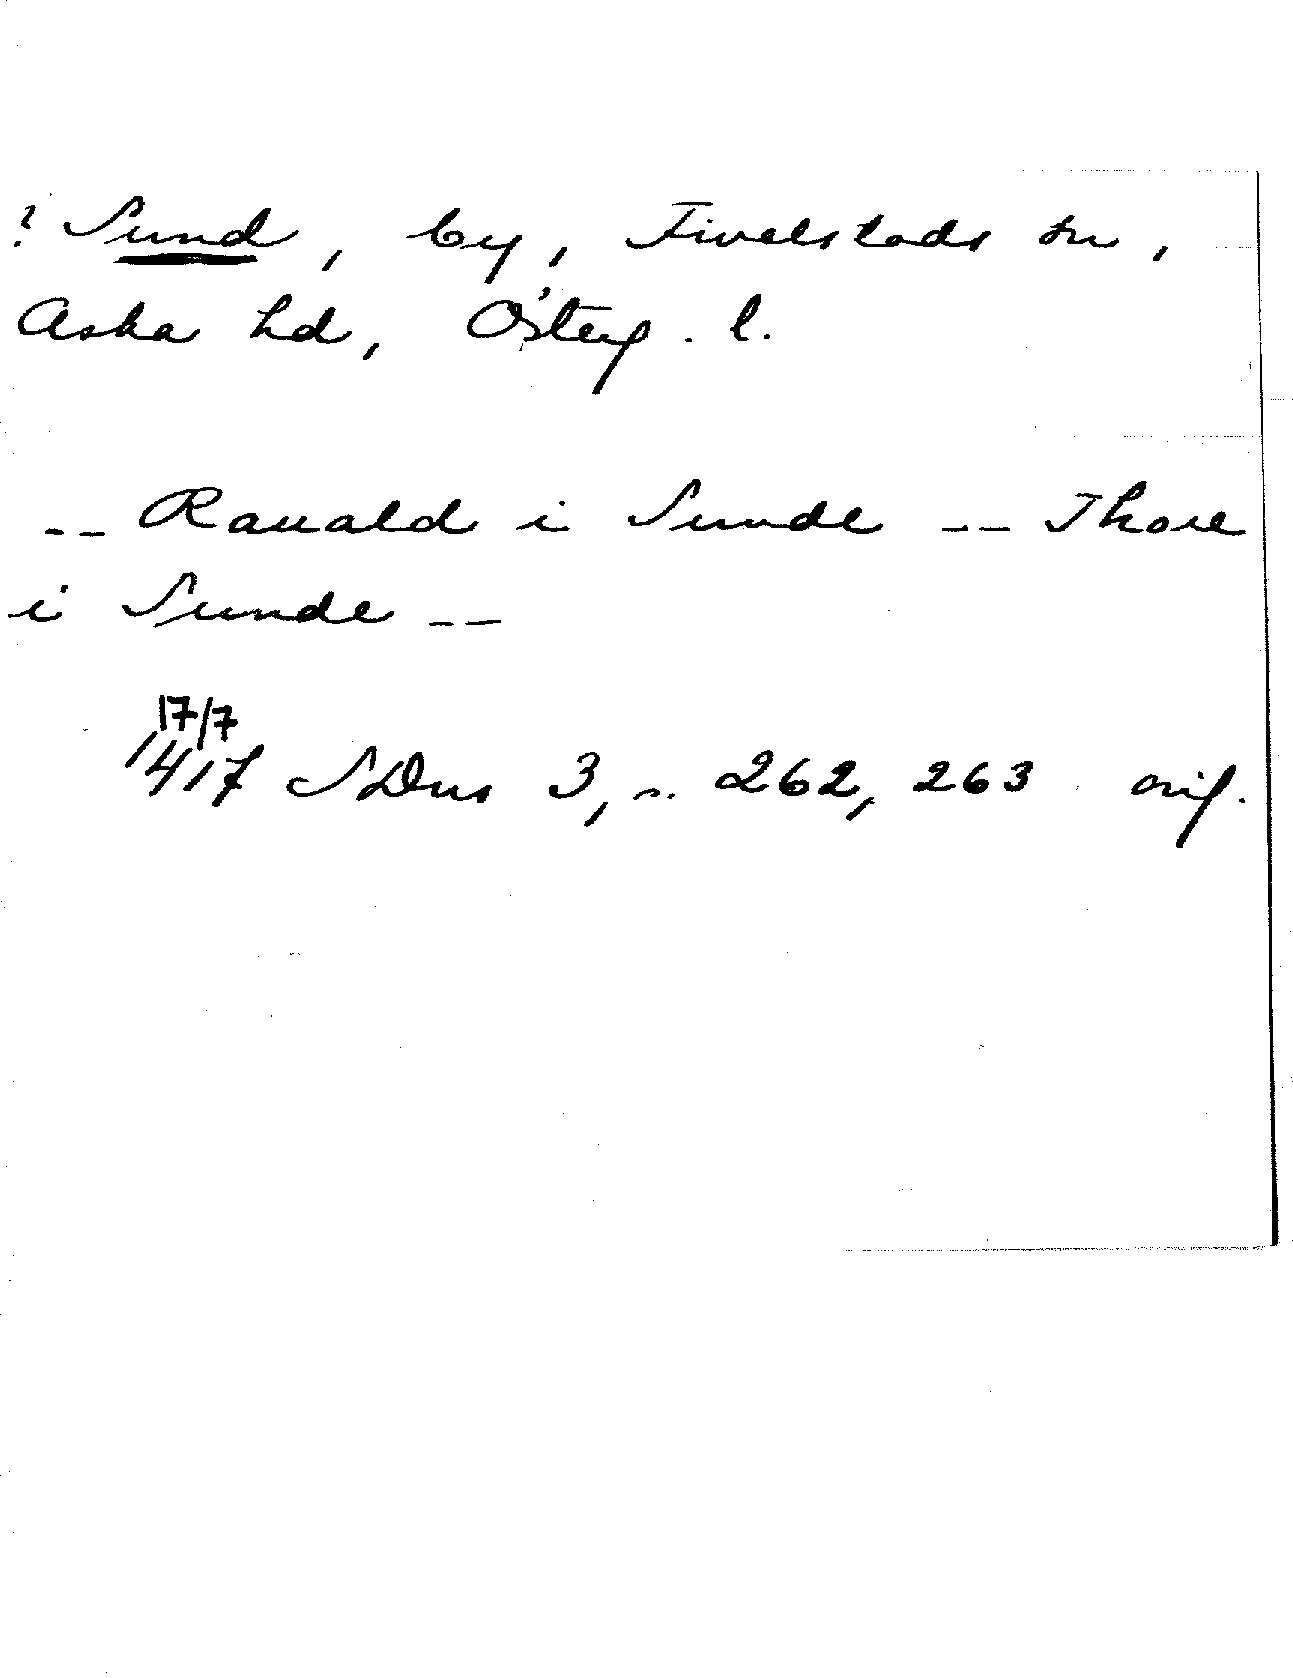 ? Sund, by, Fivelstads sn,
Aska hd, Österg. l.
-- Ranald i Sunde -- Thore
i Sunde --
17/7
1417 SDns 3, s. 262, 263 orig.